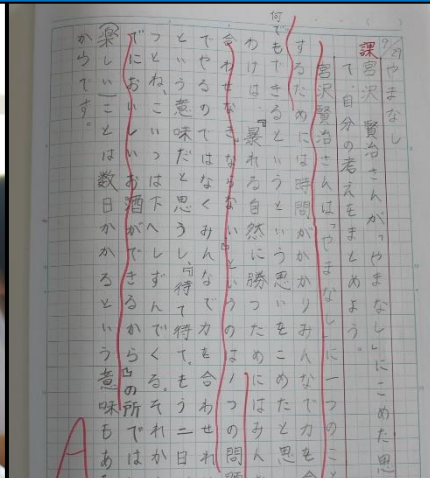 9/29 やまなし
課 宮沢賢治さんが「やまなし」にこめた思
て、自分の考えをまとめよう。
宮沢賢治さんは「やまなし」に一つのこと
するためには時間がかかりみんなで力を合
何でもできるというという思いをこめたと思
わけは、『暴れる自然に勝つためにはみん
合わせなきゃならない』というのは1つの問題
でやるのではなくみんなで力を合わせれ
という意味だと思うし、『待て待て、もう二日
っとね、こいつは下へしずんでくる。それか
でにおいしいお酒ができるから』の所では
楽しいことは数日かかるという意味もあ
からです。
A